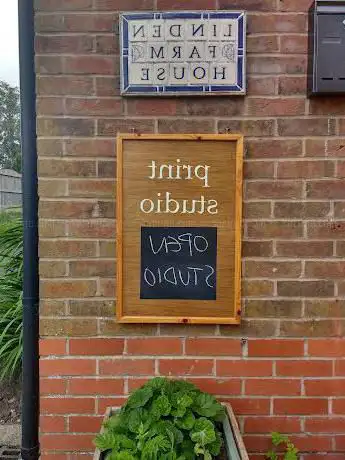 LINDEN
FARM
HOUSE
print
studio
OPEN
STUDIO